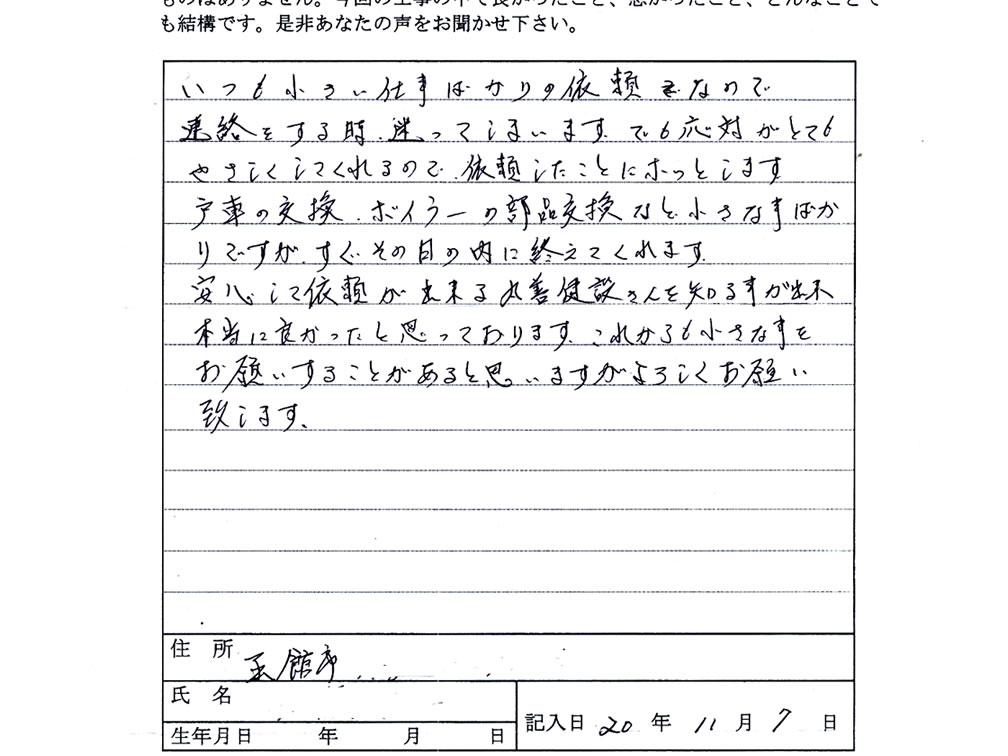 ものはありません。今回の工事の中で良かったこと、悪かったこと、どんなことで
も結構です。是非あなたの声をお聞かせ下さい。
いつも小さい仕事ばかりの依頼なので
連絡をする時、迷ってしまいます。でも応対がとても
やさしくしてくれるので、依頼したことにホッとします
戸車の交換、ボイラーの部品交換など小さな事ばか
りですが、すぐその日の内に終えてくれます。
安心して依頼が出来る丸善建設さんを知る事が出来
本当に良かったと思っております。これからも小さな事を
お願いすることがあると思いますがよろしくお願い
致します。
住 所 函館市
氏 名
生年月日 年 月 日
記入日 20 年 11 月 7 日